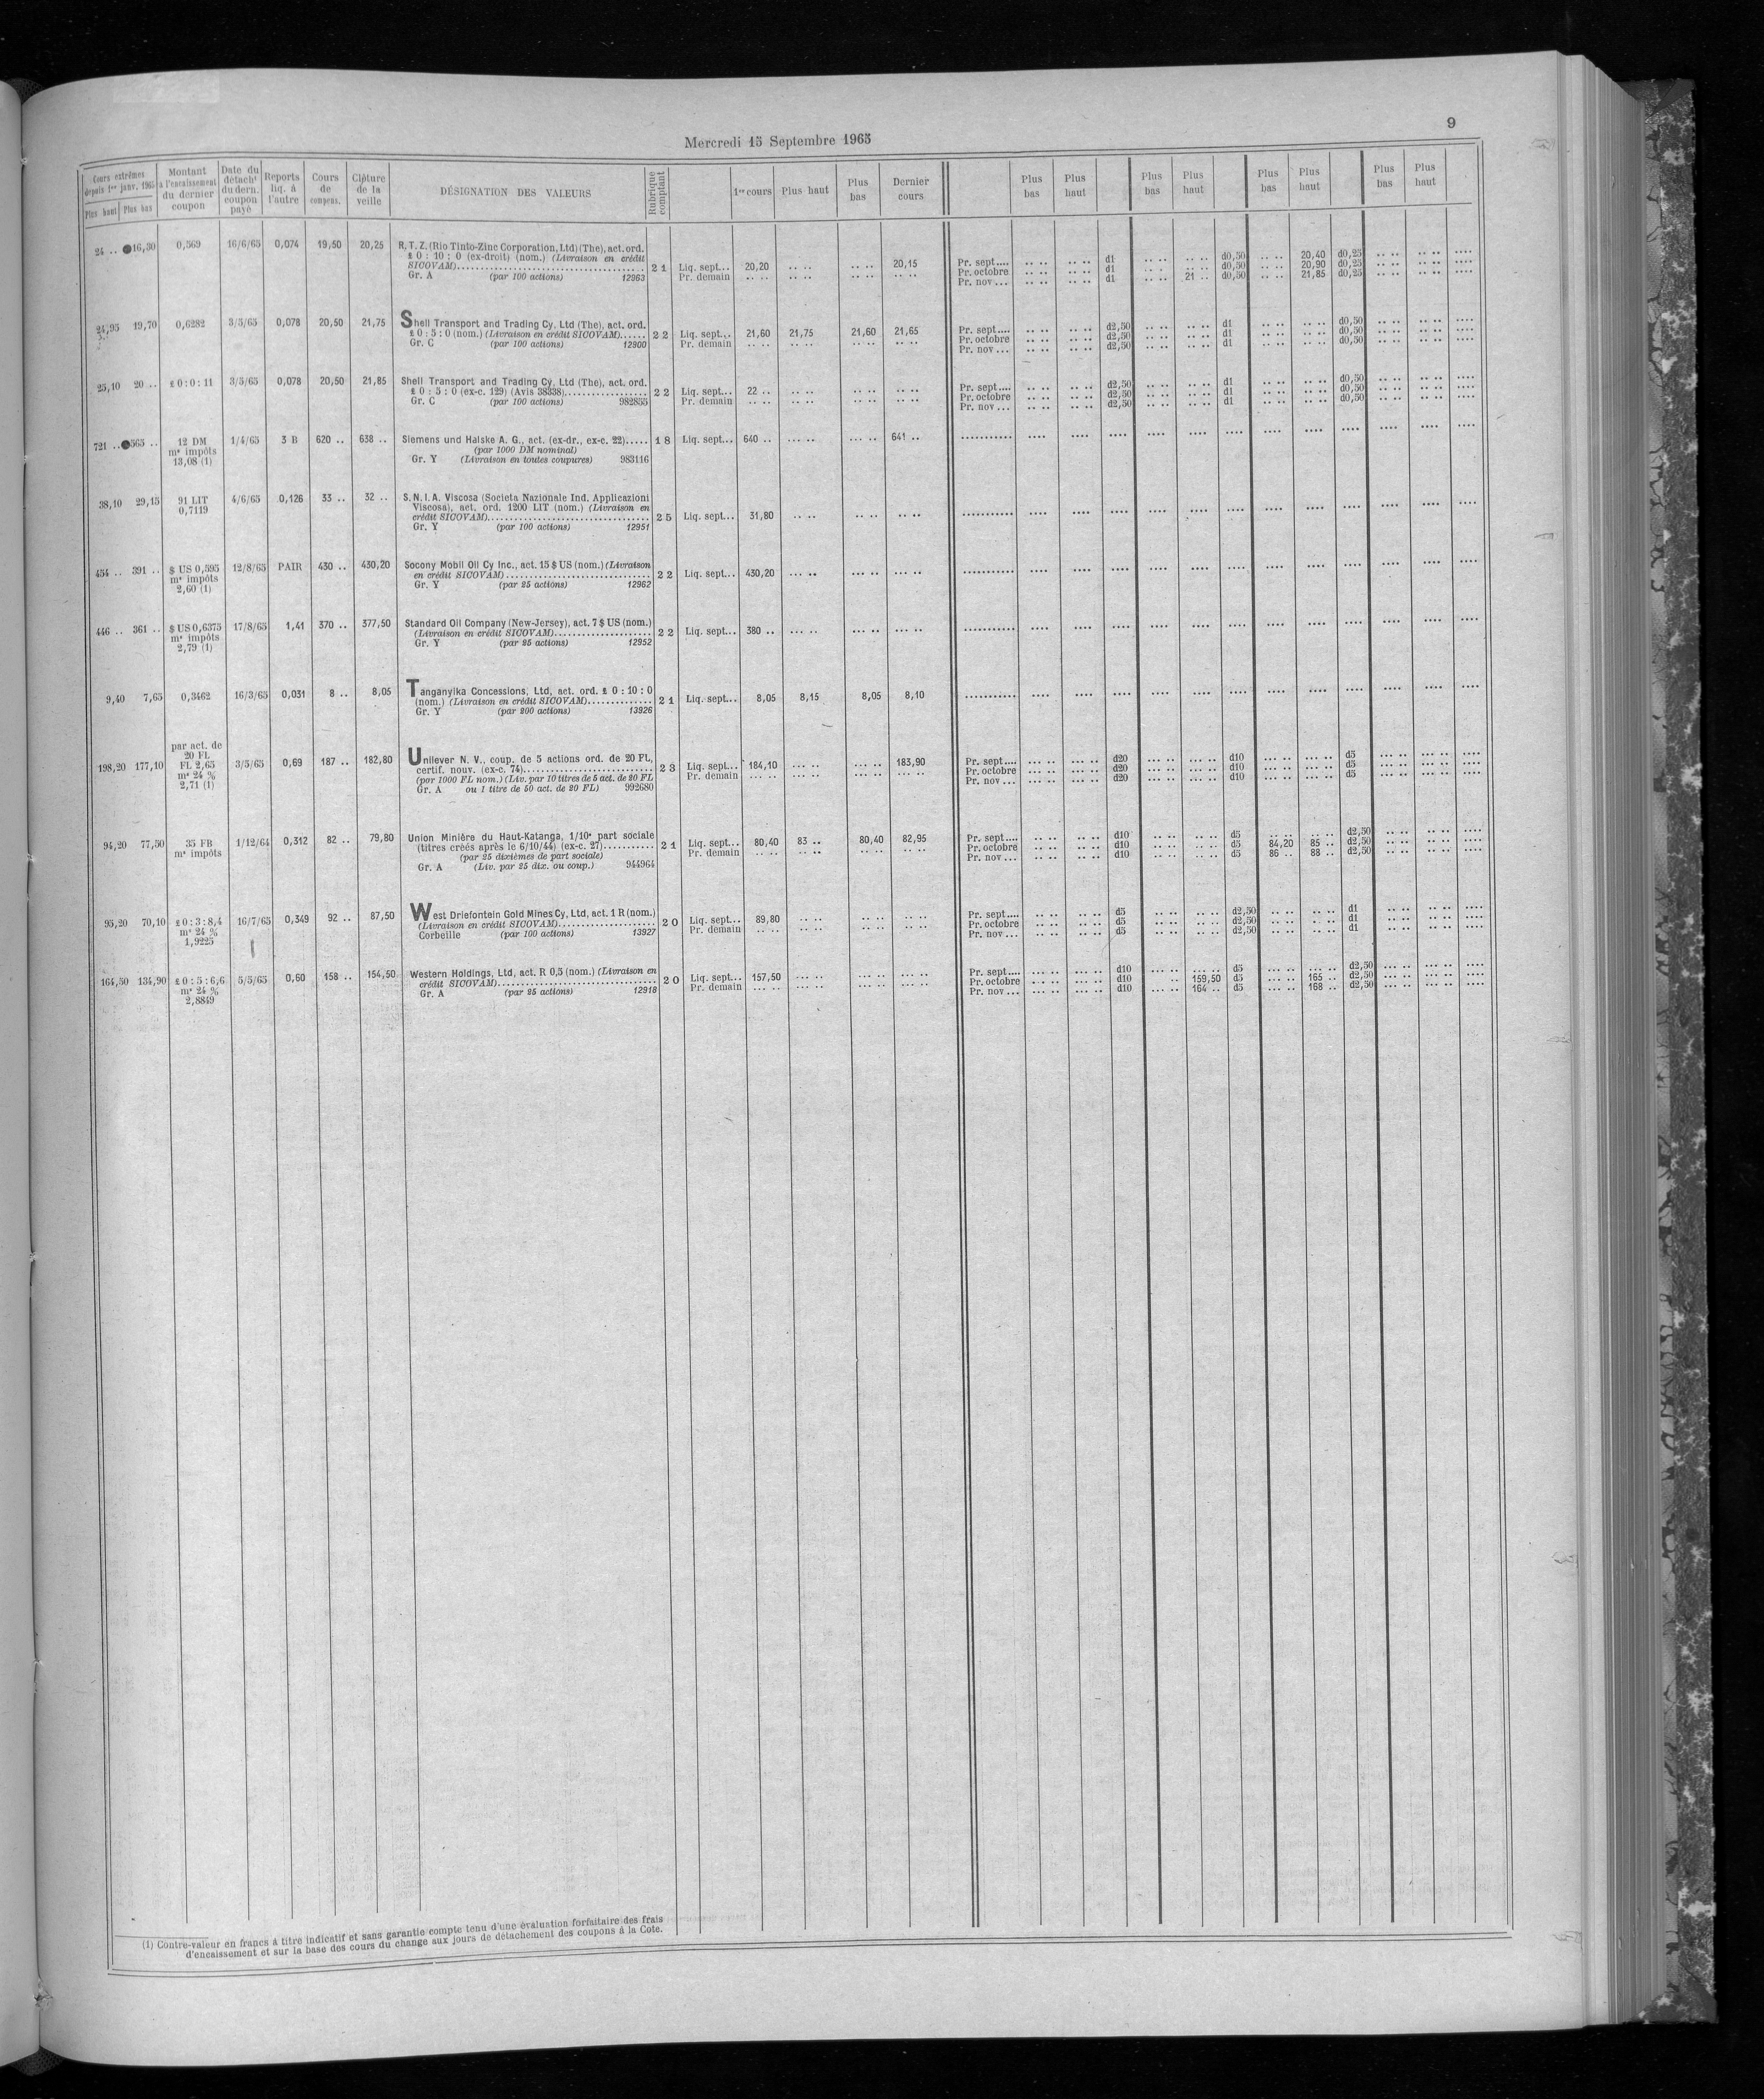 9
Mercredi 15 Septembre 1965
Cours extrêmes depuis 1er janv. 1965 Plus haut Plus bas
Montant à l'encaissement du dernier coupon
Date du détacht du dern. coupon payé
Reports liq. à l'autre
Cours de compens.
Clôture de la veille
DÉSIGNATION DES VALEURS
Rubrique comptant
1er cours Plus haut Plus bas Dernier cours
Plus bas Plus haut Plus bas Plus haut Plus bas Plus haut Plus bas Plus haut
24 .. ●16,30 0,569 16/6/65 0,074 19,50 20,25 R.T.Z. (Rio Tinto-Zinc Corporation, Ltd) (The), act. ord.
£ 0 : 10 : 0 (ex-droit) (nom.) (Livraison en crédit
SICOVAM) 21 Liq. sept... 20,20 .. .. .. .. 20,15 Pr. sept.... .. .. .. .. d1 .. .. .. .. d0,50 .. .. 20,40 d0,25 .. .. .. .. ....
Gr. A (par 100 actions) 12963 Pr. demain .. .. .. .. .. .. .. .. Pr. octobre .. .. .. .. d1 .. .. .. .. d0,50 .. .. 20,90 d0,25 .. .. .. .. ....
Pr. nov ... .. .. .. .. d1 .. .. 21 .. d0,50 .. .. 21,85 d0,25 .. .. .. .. ....
24,95 19,70 0,6282 3/5/65 0,078 20,50 21,75 Shell Transport and Trading Cy, Ltd (The), act. ord.
£ 0 : 5 : 0 (nom.) (Livraison en crédit SICOVAM)...... 22 Liq. sept... 21,60 21,75 21,60 21,65 Pr. sept.... .. .. .. .. d2,50 .. .. .. .. d1 .. .. .. .. d0,50 .. .. .. .. ....
Gr. C (par 100 actions) 12900 Pr. demain .. .. .. .. .. .. .. .. Pr. octobre .. .. .. .. d2,50 .. .. .. .. d1 .. .. .. .. d0,50 .. .. .. .. ....
Pr. nov ... .. .. .. .. d2,50 .. .. .. .. d1 .. .. .. .. d0,50 .. .. .. .. ....
25,10 20 .. £ 0 : 0 : 11 3/5/65 0,078 20,50 21,85 Shell Transport and Trading Cy, Ltd (The), act. ord.
£ 0 : 5 : 0 (ex-c. 129) (Avis 38338) 22 Liq. sept... 22 .. .. .. .. .. .. .. Pr. sept.... .. .. .. .. d2,50 .. .. .. .. d1 .. .. .. .. d0,50 .. .. .. .. ....
Gr. C (par 100 actions) 982855 Pr. demain .. .. .. .. .. .. .. .. Pr. octobre .. .. .. .. d2,50 .. .. .. .. d1 .. .. .. .. d0,50 .. .. .. .. ....
Pr. nov ... .. .. .. .. d2,50 .. .. .. .. d1 .. .. .. .. d0,50 .. .. .. .. ....
721 .. ●565 .. 12 DM 1/4/65 3 B 620 .. 638 .. Siemens und Halske A. G., act. (ex-dr., ex-c. 22)..... 18 Liq. sept... 640 .. ... .. ... .. 641 ..
ms impôts (par 1000 DM nominal)
13,08 (1) Gr. Y (Livraison en toutes coupures) 983116
38,10 29,15 91 LIT 4/6/65 0,126 33 .. 32 .. S. N. I. A. Viscosa (Societa Nazionale Ind. Applicazioni
0,7119 Viscosa), act. ord. 1200 LIT (nom.) (Livraison en
crédit SICOVAM) 25 Liq. sept... 31,80 .. .. .. .. .. ..
Gr. Y (par 100 actions) 12951
454 .. 391 .. $ US 0,595 12/8/65 PAIR 430 .. 430,20 Socony Mobil Oil Cy Inc., act. 15 $ US (nom.) (Livraison
ms impôts en crédit SICOVAM) 22 Liq. sept... 430,20 ... .. ... .. ... ..
2,60 (1) Gr. Y (par 25 actions) 12962
446 .. 361 .. $ US 0,6375 17/8/65 1,41 370 .. 377,50 Standard Oil Company (New-Jersey), act. 7 $ US (nom.)
ms impôts (Livraison en crédit SICOVAM) 22 Liq. sept... 380 .. ... .. ... .. ... ..
2,79 (1) Gr. Y (par 25 actions) 12952
9,40 7,65 0,3462 16/3/65 0,031 8 .. 8,05 Tanganyika Concessions, Ltd, act. ord. £ 0 : 10 : 0
(nom.) (Livraison en crédit SICOVAM) 21 Liq. sept... 8,05 8,15 8,05 8,10
Gr. Y (par 200 actions) 13926
par act. de
20 FL
198,20 177,10 FL 2,65 3/5/65 0,69 187 .. 182,80 Unilever N. V., coup. de 5 actions ord. de 20 FL,
ms 24 % certif. nouv. (ex-c. 74) 23 Liq. sept... 184,10 ... .. ... .. 183,90 Pr. sept.... ... .. ... .. d20 ... .. ... .. d10 ... .. ... .. d5 ... .. ... .. ....
2,71 (1) (por 1000 FL nom.) (Liv. par 10 titres de 5 act. de 20 FL Pr. demain ... .. ... .. ... .. ... .. Pr. octobre ... .. ... .. d20 ... .. ... .. d10 ... .. ... .. d5 ... .. ... .. ....
Gr. A ou 1 titre de 50 act. de 20 FL) 992680 Pr. nov ... ... .. ... .. d20 ... .. ... .. d10 ... .. ... .. d5 ... .. ... .. ....
94,20 77,50 35 FB 1/12/64 0,312 82 .. 79,80 Union Minière du Haut-Katanga, 1/10e part sociale
ms impôts (titres créés après le 6/10/44) (ex-c. 27)........... 21 Liq. sept... 80,40 83 .. 80,40 82,95 Pr. sept.... .. .. .. .. d10 .. .. .. .. d5 .. .. .. .. d2,50 .. .. .. .. ....
(par 25 dixièmes de part sociale) Pr. demain .. .. .. .. .. .. .. .. Pr. octobre .. .. .. .. d10 .. .. .. .. d5 84,20 85 .. d2,50 .. .. .. .. ....
Gr. A (Liv. par 25 dix. ou coup.) 944964 Pr. nov ... .. .. .. .. d10 .. .. .. .. d5 86 .. 88 .. d2,50 .. .. .. .. ....
95,20 70,10 £ 0 : 3 : 8,4 16/7/65 0,349 92 .. 87,50 West Driefontein Gold Mines Cy, Ltd, act. 1 R (nom.)
ms 24 % (Livraison en crédit SICOVAM) 20 Liq. sept... 89,80 .. .. .. .. .. .. Pr. sept.... .. .. .. .. d5 .. .. .. .. d2,50 .. .. .. .. d1 .. .. .. .. ....
1,9225 Corbeille (par 100 actions) 13927 Pr. demain .. .. .. .. .. .. .. .. Pr. octobre .. .. .. .. d5 .. .. .. .. d2,50 .. .. .. .. d1 .. .. .. .. ....
Pr. nov ... .. .. .. .. d5 .. .. .. .. d2,50 .. .. .. .. d1 .. .. .. .. ....
164,50 134,90 £ 0 : 5 : 6,6 5/5/65 0,60 158 .. 154,50 Western Holdings, Ltd, act. R 0,5 (nom.) (Livraison en
ms 24 % crédit SICOVAM) 20 Liq. sept... 157,50 ... .. ... .. ... .. Pr. sept.... ... .. ... .. d10 ... .. ... .. d5 ... .. ... .. d2,50 ... .. ... .. ....
2,8849 Gr. A (par 25 actions) 12918 Pr. demain ... .. ... .. ... .. ... .. Pr. octobre ... .. ... .. d10 .. 159,50 d5 ... .. 165 .. d2,50 ... .. ... .. ....
Pr. nov ... ... .. ... .. d10 ... .. 164 .. d5 ... .. 168 .. d2,50 ... .. ... .. ....
(1) Contre-valeur en francs à titre indicatif et sans garantie compte tenu d'une évaluation forfaitaire des frais
d'encaissement et sur la base des cours du change aux jours de détachement des coupons à la Cote.